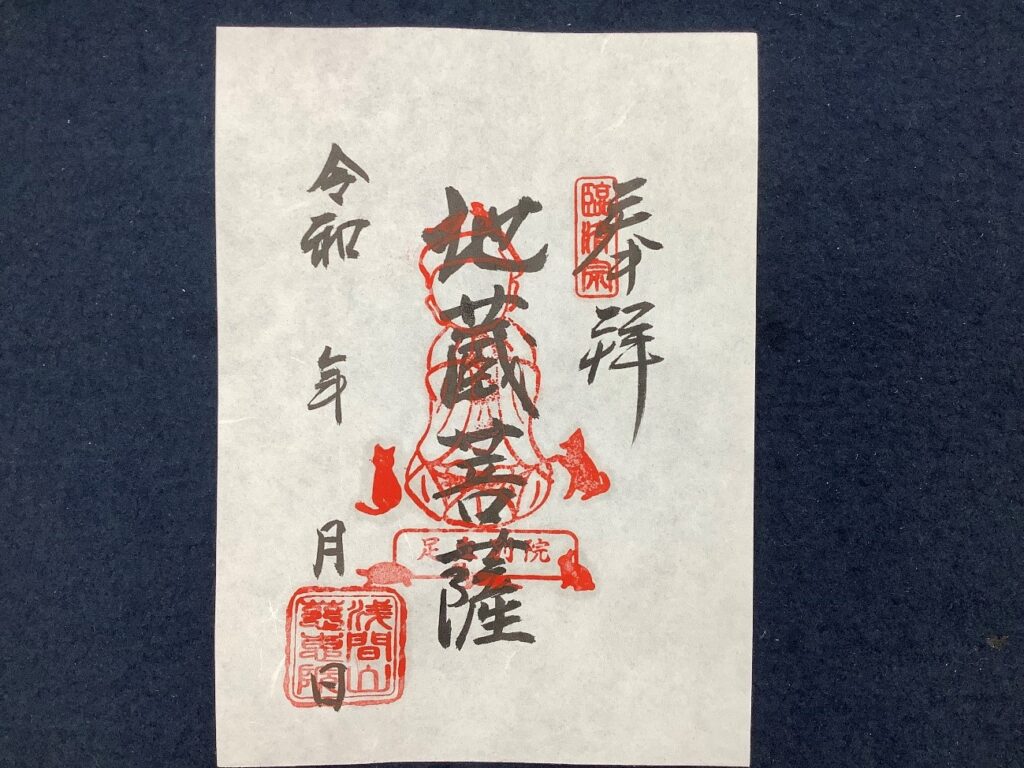 奉拝
臨済宗
地蔵菩薩
足 院
令和 年 月 日
浅間山